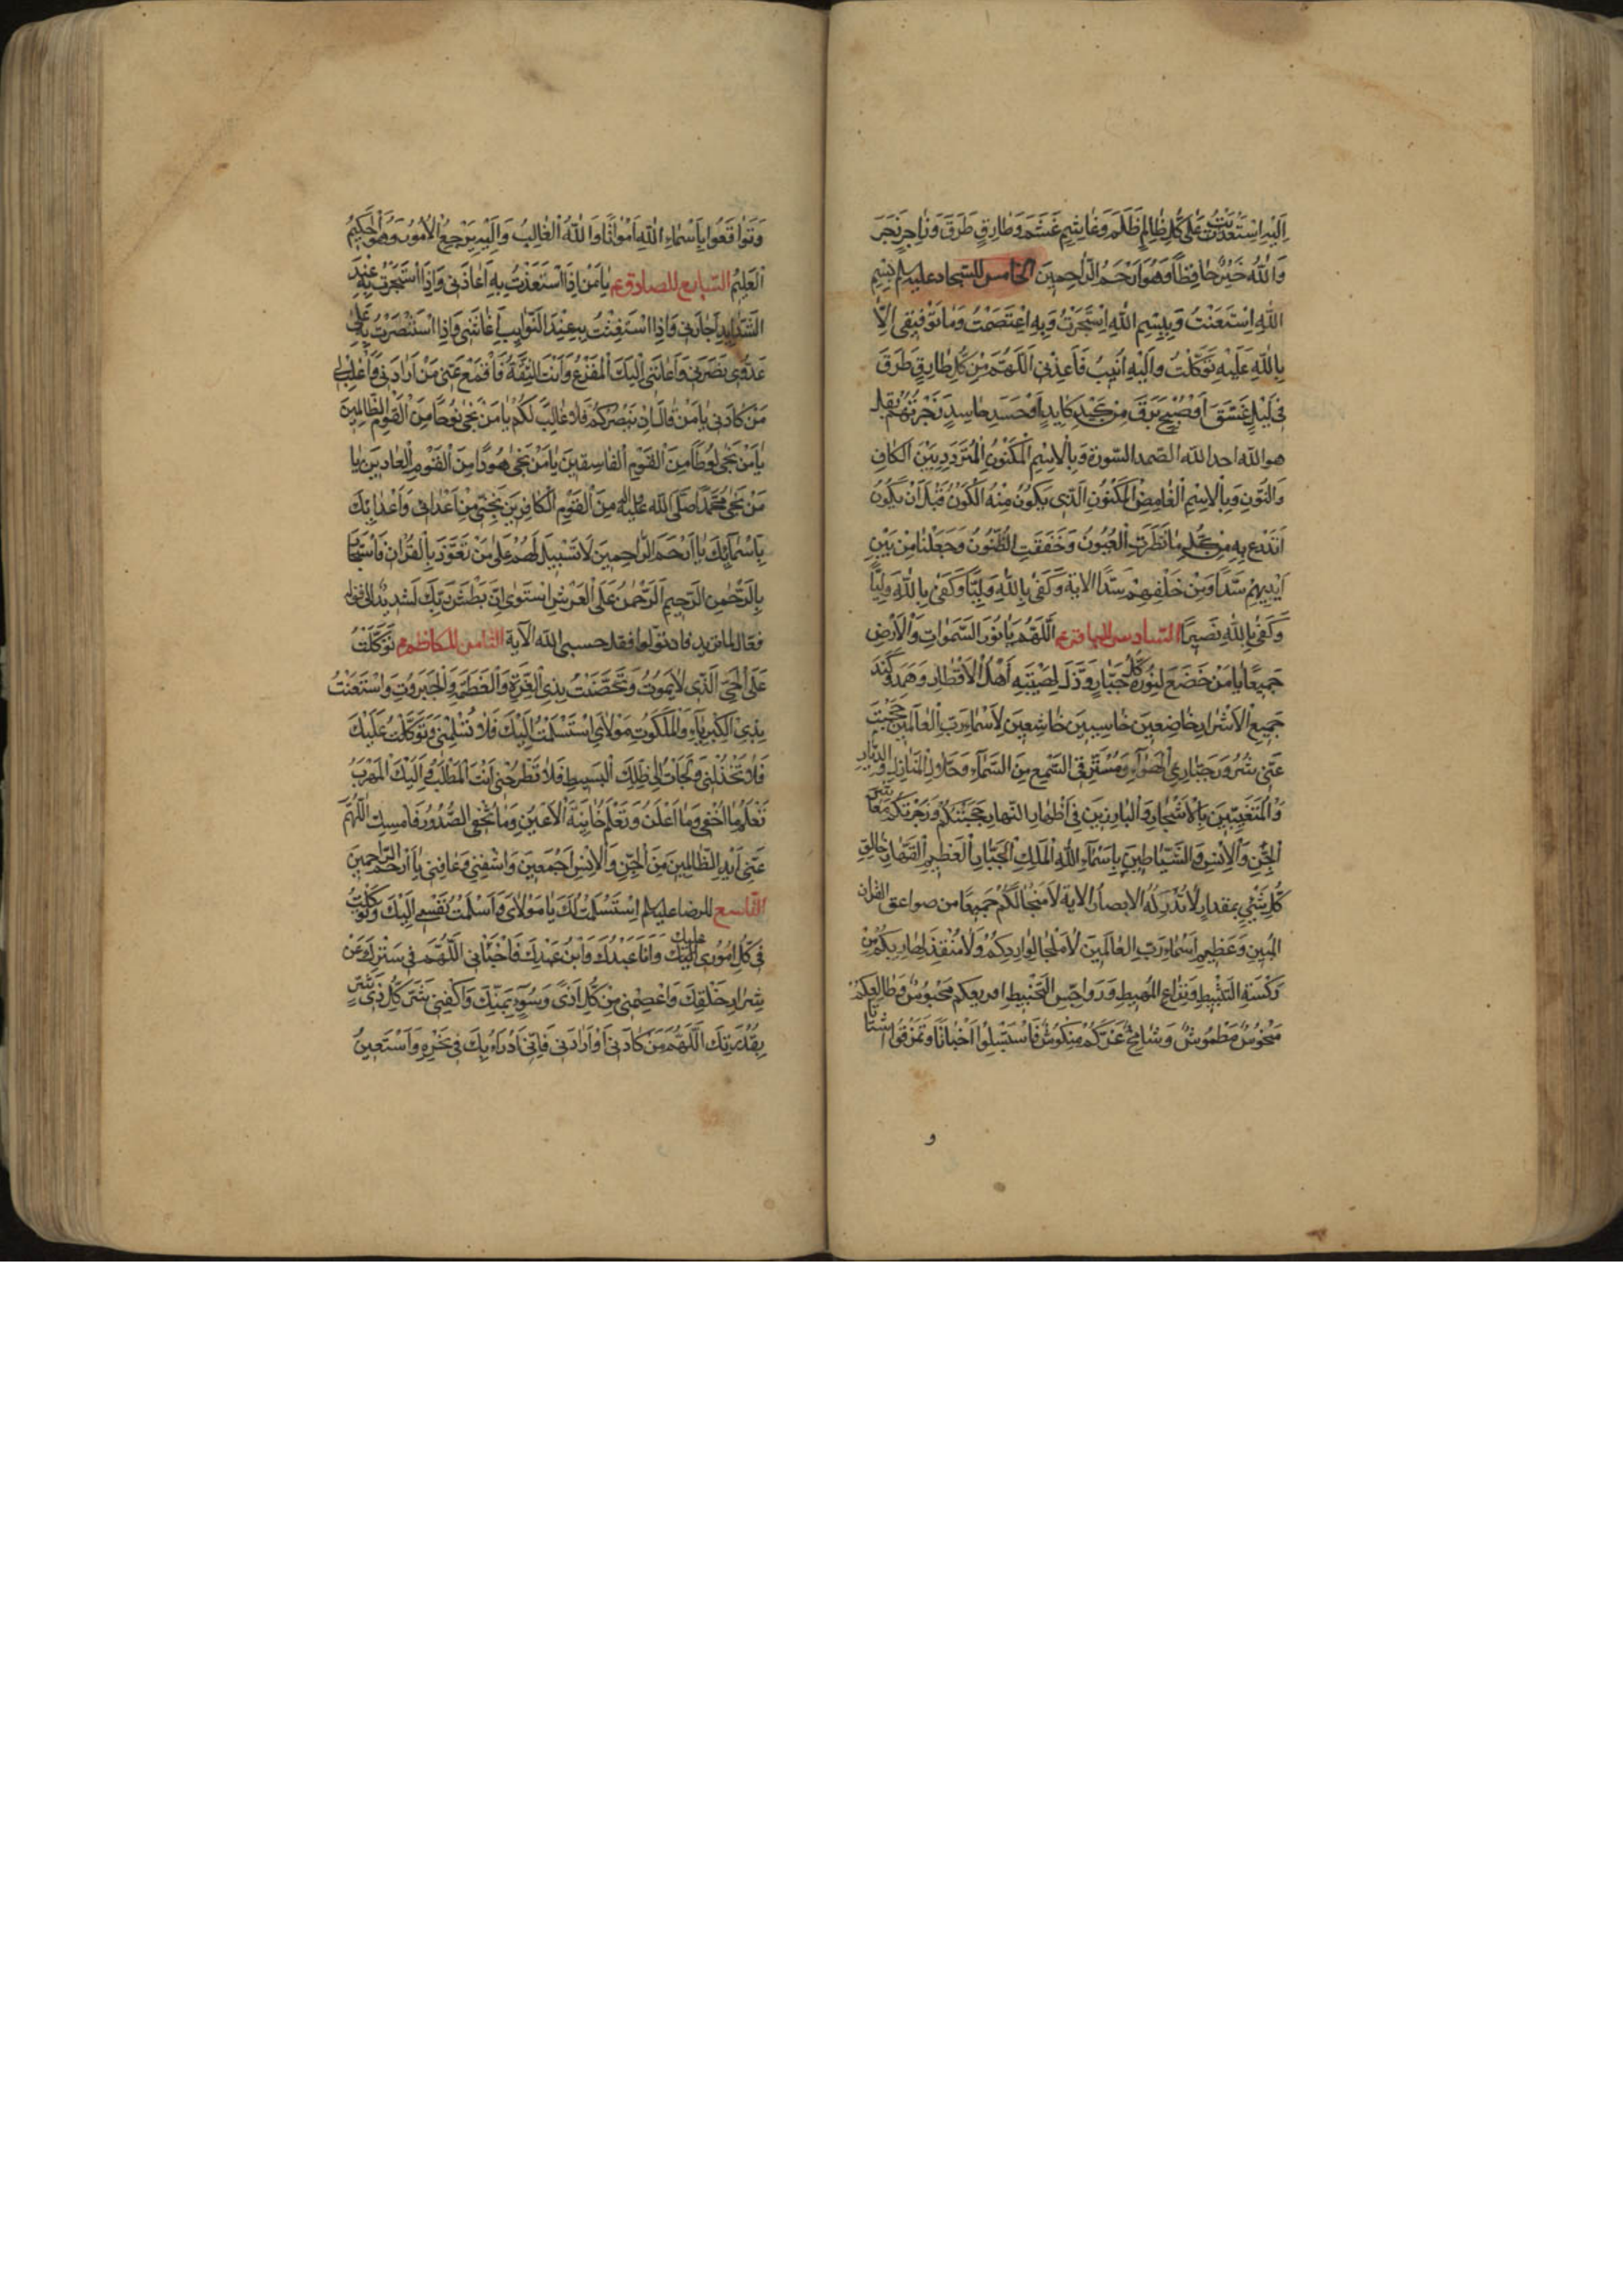 اِلَيْهِ اسْتَعْدَيْتُ عَلىٰ كُلِّ ظَالِمٍ ظَلَمَ وَغَاشِمٍ غَشَمَ وَطَارِقٍ طَرَقَ وَزَاجِرٍ زَجَرَ
وَاللهُ خَيْرٌ حَافِظًا وَهُوَ اَرْحَمُ الرَّاحِمِينَ الخامس للسجاد عليه السلم بِسْمِ
اللهِ اسْتَعَنْتُ وَبِبِسْمِ اللهِ اسْتَجَرْتُ وَبِهِ اعْتَصَمْتُ وَمَا تَوْفِيقِي اِلَّا
بِاللهِ عَلَيْهِ تَوَكَّلْتُ وَاِلَيْهِ اُنِيبُ فَاَعِذْنِي اَللّٰهُمَّ مِنْ كُلِّ طَارِقٍ طَرَقَ
فِي لَيْلٍ غَسَقَ اَوْ صُبْحٍ بَرَقَ مِنْ كَيْدِ كَايِدٍ اَوْ حَسَدِ حَاسِدٍ زَجَرْتُهُمْ بقل
هو الله احد الله الصمد السّورة وَبِالْاِسْمِ الْمَكْنُونِ الْمُتَرَدِّدِ بَيْنَ الْكَافِ
وَالنُّونِ وَبِالْاِسْمِ الْغَامِضِ الْمَكْنُونِ الَّذِي يَكُونُ مِنْهُ الْكَوْنُ قَبْلَ اَنْ يَكُونَ
اَتَدَرَّعُ بِهِ مِنْ كُلِّ مَا نَظَرَتِ الْعُيُونُ وَخَفَقَتِ الظُّنُونُ وَجَعَلْنَا مِنْ بَيْنِ
اَيْدِيهِمْ سَدًّا وَمِنْ خَلْفِهِمْ سَدًّا الاية وَكَفىٰ بِاللهِ وَلِيًّا وَكَفىٰ بِاللهِ وَلِيًّا
وَكَفىٰ بِاللهِ نَصِيرًا السّادس للباقر ع اَللّٰهُمَّ يَا نُورَ السَّمٰوَاتِ وَالْاَرْضِ
جَمِيعًا يَا مَنْ خَضَعَ لِنُورِهِ كُلُّ جَبَّارٍ وَذَلَّ لِهَيْبَتِهِ اَهْلُ الْاَقْطَارِ وَهَمَدَ وَكَنَدَ
جَمِيعُ الْاَشْرَارِ خَاضِعِينَ خَاسِئِينَ خَاشِعِينَ لِاَسْمَاءِ رَبِّ الْعَالَمِينَ حَجَبْتُ
عَنِّي شُرُورَ جَبَّارِي الْهَوَاءِ وَمُسْتَرِقِي السَّمْعِ مِنَ السَّمَاءِ وَحُلَّالِ الْمَنَازِلِ وَالدِّيَارِ
وَالْمُتَغَيِّبِينَ بِالْاَشْجَارِ وَالْبَارِزِينَ فِي اَظْهَارِ النَّهَارِ حَجَبْتُكُمْ وَزَجَرْتُكُمْ مَعَاشِرَ
الْجِنِّ وَالْاِنْسِ وَالشَّيَاطِينِ بِاَسْمَاءِ اللهِ الْمَلِكِ الْجَبَّارِ الْعَظِيمِ الْقَهَّارِ خَالِقِ
كُلِّ شَيْءٍ بِمِقْدَارٍ لَا تُدْرِكُهُ الْاَبْصَارُ الاية لَا مَنْجَا لَكُمْ جَمِيعًا من صواعق القران
المُبِينِ وَعَظِيمِ اَسْمَاءِ رَبِّ الْعَالَمِينَ لَا مَلْجَأَ لِوَارِدِكُمْ وَلَا مُنْقِذَ لِهَارِبِكُمْ مِنْ
رَكْسَةِ التَّثْبِيطِ وَنِزَاعِ الْمَهِيطِ وَرَوَاجِسِ التَّخْبِيطِ فرايعكم مَحْبُوسٌ وَطَالِعُكُمْ
مَنْحُوسٌ مَطْمُوسٌ وَشَامِخُ عِزِّكُمْ مَنْكُوسٌ فَاسْتَبْسِلُوا اَخْبَاتًا وَتَمَزَّقُوا اشْتَاتًا
و
وَتَوَاقَعُوا بِاَسْمَاءِ اللهِ اَمْوَاتًا وَاللهُ الْغَالِبُ وَاِلَيْهِ يَرْجِعُ الْاُمُورُ وَهُوَ الْحَكِيمُ
الْعَلِيمُ السّابع للصادق ع يَا مَنْ اِذَا اسْتَعَذْتُ بِهِ اَعَاذَنِي وَاِذَا اسْتَجَرْتُ بِهِ عِنْدَ
الشَّدَايِدِ اَجَارَنِي وَاِذَا اسْتَغَثْتُ بِهِ عِنْدَ النَّوَايِبِ اَغَاثَنِي وَاِذَا اسْتَنْصَرْتُ بِهِ عَلىٰ
عَدُوِّي نَصَرَنِي وَاَعَانَنِي اِلَيْكَ الْمَفْزَعُ وَاَنْتَ الثِّقَةُ فَاقْمَعْ عَنِّي مَنْ اَرَادَنِي وَاغْلِبْ لِي
مَنْ كَادَنِي يَا مَنْ قَالَ اِنْ يَنْصُرْكُمُ فَلَا غَالِبَ لَكُمْ يَا مَنْ نَجّىٰ نُوحًا مِنَ الْقَوْمِ الظَّالِمِينَ
يَا مَنْ نَجّىٰ لُوطًا مِنَ الْقَوْمِ الْفَاسِقِينَ يَا مَنْ نَجّىٰ هُودًا مِنَ الْقَوْمِ الْعَادِينَ يَا
مَنْ نَجّىٰ مُحَمَّدًا صَلَّى الله عليه واله مِنَ الْقَوْمِ الْكَافِرِينَ نَجِّنِي مِنْ اَعْدَائِي وَاَعْدَائِكَ
بِاَسْمَائِكَ يَا اَرْحَمَ الرَّاحِمِينَ لَا سَبِيلَ لَهُمْ عَلىٰ مَنْ تَعَوَّذَ بِالْقُرْانِ وَاسْتَجَارَ
بِالرَّحْمٰنِ الرَّحِيمِ اَلرَّحْمٰنُ عَلَى الْعَرْشِ اسْتَوىٰ اِنَّ بَطْشَ رَبِّكَ لَشَدِيدٌ الى قوله
فعّال لما يريد فان تولّوا فقل حسبى الله الآية الثامن للكاظم ع تَوَكَّلْتُ
عَلَى الْحَيِّ الَّذِي لَا يَمُوتُ وَتَحَصَّنْتُ بِذِي الْعِزَّةِ وَالْعَظَمَةِ وَالْجَبَرُوتِ وَاسْتَعَنْتُ
بِذِي الْكِبْرِيَاءِ وَالْمَلَكُوتِ مَوْلَايَ اسْتَسْلَمْتُ اِلَيْكَ فَلَا تُسْلِمْنِي وَتَوَكَّلْتُ عَلَيْكَ
فَلَا تَخْذُلْنِي وَلَجَأْتُ اِلىٰ ظِلِّكَ الْبَسِيطِ فَلَا تَطْرَحْنِي اَنْتَ الْمَطْلَبُ وَاِلَيْكَ الْمَهْرَبُ
تَعْلَمُ مَا اُخْفِي وَمَا اُعْلِنُ وَتَعْلَمُ خَائِنَةَ الْاَعْيُنِ وَمَا تُخْفِي الصُّدُورُ فَامْسِكِ اللّٰهُمَّ
عَنِّي اَيْدِ الظَّالِمِينَ مِنَ الْجِنِّ وَالْاِنْسِ اَجْمَعِينَ وَاشْفِنِي وَعَافِنِي يَا اَرْحَمَ الرَّاحِمِينَ
التّاسع للرضا عليه السلم اِسْتَسْلَمْتُ لَكَ يَا مَوْلَايَ وَاَسْلَمْتُ نَفْسِي اِلَيْكَ وَتَوَكَّلْتُ
فِي كُلِّ اُمُورِي عليك وَاَنَا عَبْدُكَ وَابْنُ عَبْدِكَ فَاخْبَأْنِي اَللّٰهُمَّ فِي سِتْرِكَ عَنْ
شِرَارِ خَلْقِكَ وَاعْصِمْنِي مِنْ كُلِّ اَذًى وَسُوءٍ بِمَنِّكَ وَاكْفِنِي شَرَّ كُلِّ ذِي شَرٍّ
بِقُدْرَتِكَ اَللّٰهُمَّ مَنْ كَادَنِي اَوْ اَرَادَنِي فَاِنِّي اَدْرَاُ بِكَ فِي نَحْرِهِ وَاَسْتَعِينُ